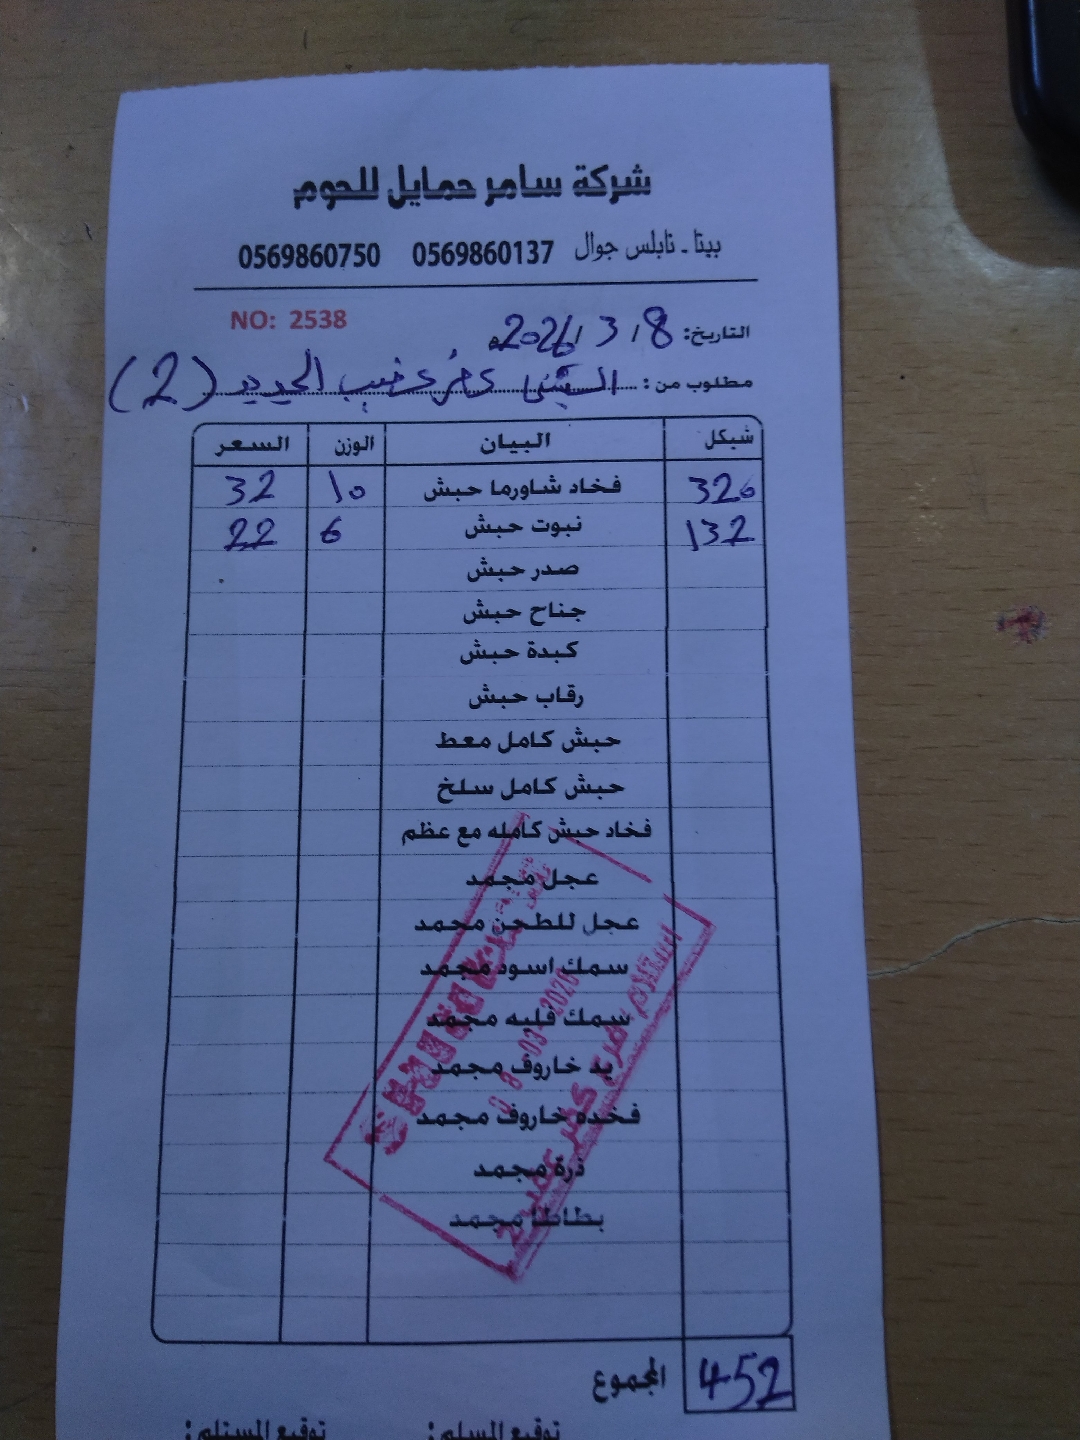 شركة سامر حمايل للحوم
بيتا - نابلس جوال 0569860137 0569860750
NO: 2538
التاريخ: 8 / 3 / 2026م
مطلوب من : الحديد (2)
شيكل البيان الوزن السعر
320 فخاد شاورما حبش 10 32
132 نبوت حبش 6 22
صدر حبش
جناح حبش
كبدة حبش
رقاب حبش
حبش كامل معط
حبش كامل سلخ
فخاد حبش كامله مع عظم
عجل مجمد
عجل للطحن مجمد
سمك اسود مجمد
سمك فليه مجمد
يد خاروف مجمد
فخده خاروف مجمد
ذرة مجمد
بطاطا مجمد
المجموع 452
توقيع المسلم : توقيع المستلم :
استلام فرع كفر عقب 2